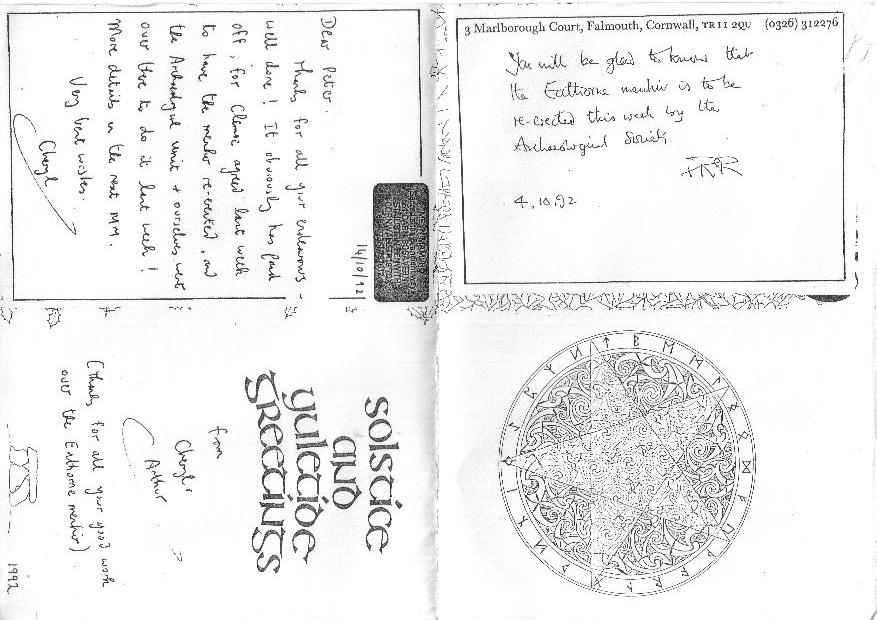 3 Marlborough Court, Falmouth, Cornwall, TR11 2QU (0326) 312276
You will be glad to know that
the Eathorne menhir is to be
re-erected this week by the
Archaeological Society
4.10.92
14/10/92
Dear Peter.
Thanks for all your endeavours -
well done! It obviously has paid
off, for Clemo agreed last week
to have the menhir re-erected, and
the Archaeology unit + ourselves went
over there to do it last week!
More details in the next MM.
Very best wishes.
Cheryl
solstice
and
yuletide
greetings
from
Cheryl
Arthur
(Thanks for all your good work
over the Eathorne menhir)
1992